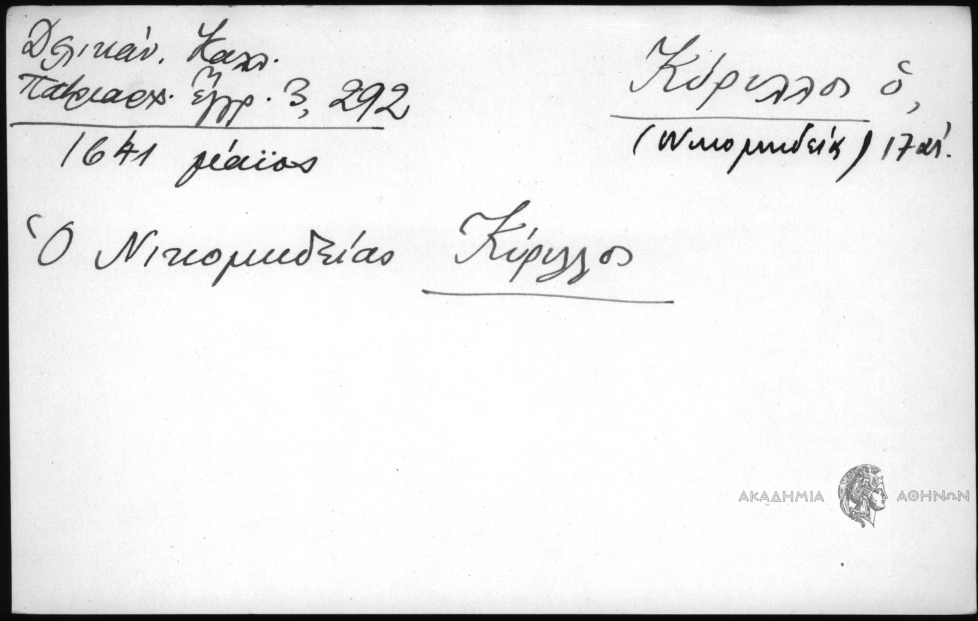 Δελικάν. Καλλ.
Πατριαρχ. ἔγγρ. 3, 292
1641 μάϊος
Κύριλλος ὁ,
(Νικομηδείας) 17 αἰ.
Ὁ Νικομηδείας Κύριλλος
ΑΚΑΔΗΜΙΑ ΑΘΗΝΩΝ